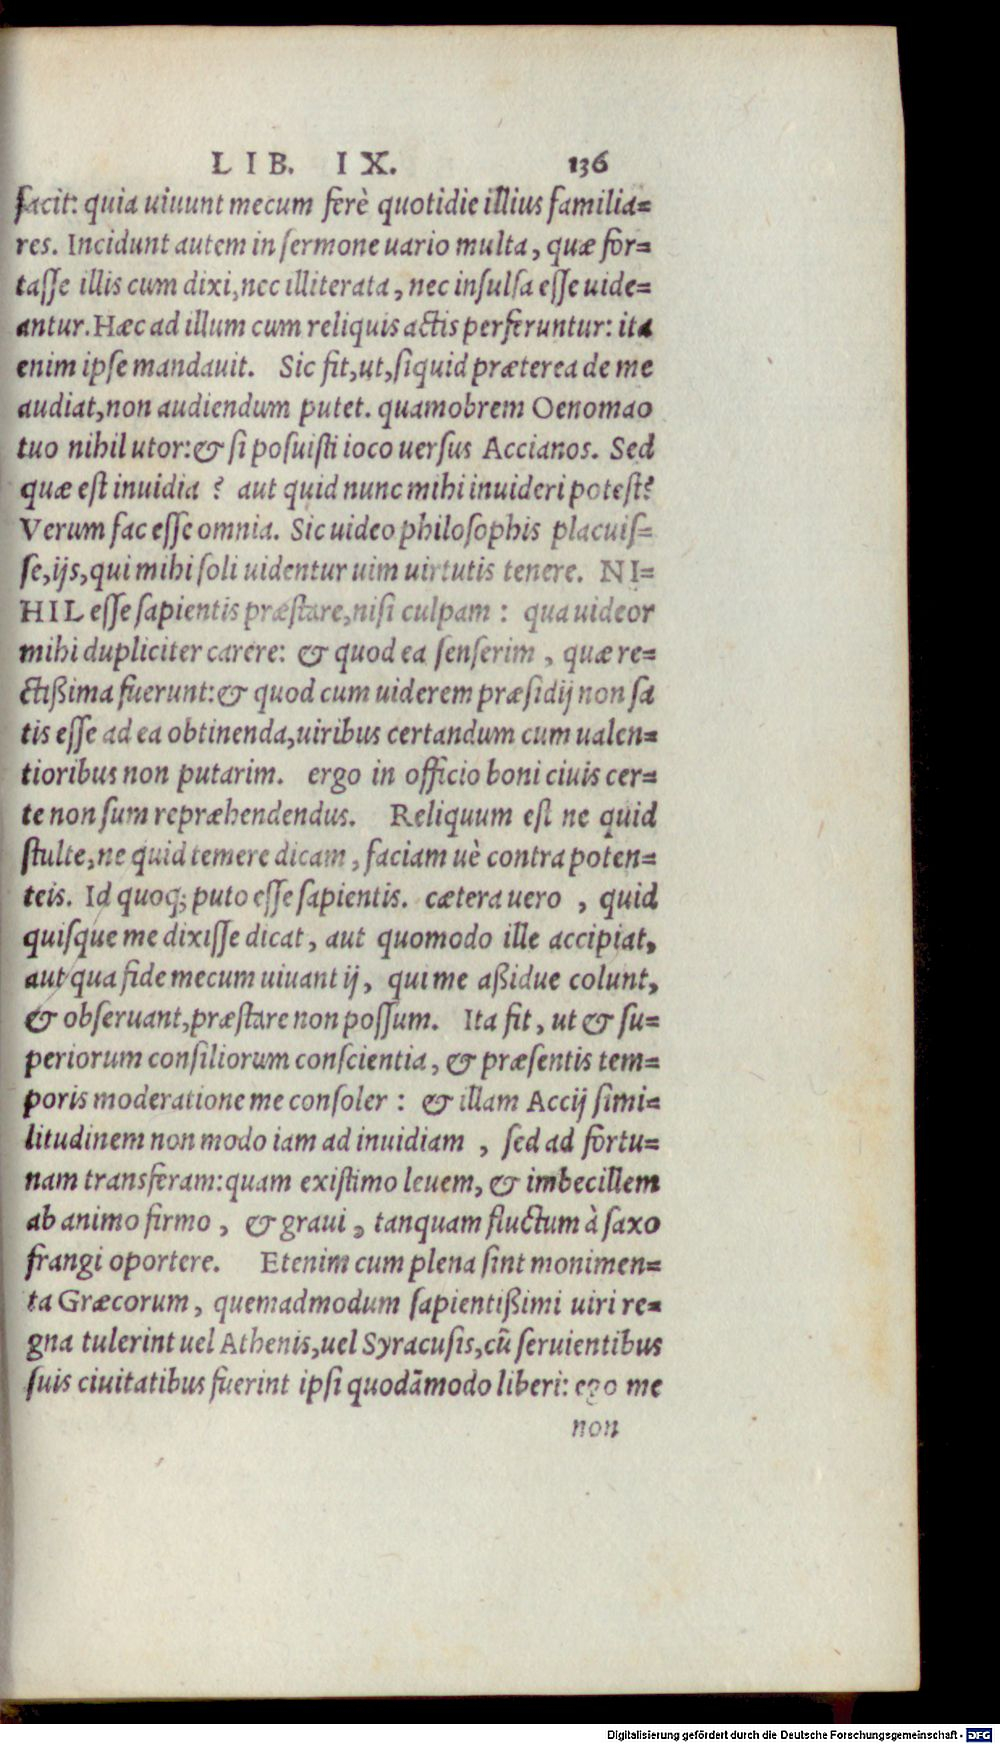 LIB. IX. 136
facit: quia uiuunt mecum ferè quotidie illius familia=
res. Incidunt autem in sermone uario multa, quæ for=
tasse illis cum dixi, nec illiterata, nec insulsa esse uide=
antur. Hæc ad illum cum reliquis actis perferuntur: ita
enim ipse mandauit. Sic fit, ut, siquid præterea de me
audiat, non audiendum putet. quamobrem Oenomao
tuo nihil utor: & si posuisti ioco uersus Accianos. Sed
quæ est inuidia ? aut quid nunc mihi inuideri potest?
Verum fac esse omnia. Sic uideo philosophis placuis=
se, ijs, qui mihi soli uidentur uim uirtutis tenere. NI=
HIL esse sapientis præstare, nisi culpam : qua uideor
mihi dupliciter carere: & quod ea senserim , quæ re=
ctißima fuerunt: & quod cum uiderem præsidij non sa
tis esse ad ea obtinenda, uiribus certandum cum ualen=
tioribus non putarim. ergo in officio boni ciuis cer=
te non sum repræhendendus. Reliquum est ne quid
stulte, ne quid temere dicam, faciam uè contra poten=
teis. Id quoq; puto esse sapientis. cætera uero , quid
quisque me dixisse dicat, aut quomodo ille accipiat,
aut qua fide mecum uiuant ij, qui me aßidue colunt,
& obseruant, præstare non possum. Ita fit, ut & su=
periorum consiliorum conscientia, & præsentis tem=
poris moderatione me consoler : & illam Accij simi=
litudinem non modo iam ad inuidiam , sed ad fortu=
nam transferam: quam existimo leuem, & imbecillem
ab animo firmo , & graui, tanquam fluctum à saxo
frangi oportere. Etenim cum plena sint monimen=
ta Græcorum, quemadmodum sapientißimi uiri re=
gna tulerint uel Athenis, uel Syracusis, cũ seruientibus
suis ciuitatibus fuerint ipsi quodãmodo liberi: ego me
non
Digitalisierung gefördert durch die Deutsche Forschungsgemeinschaft - DFG